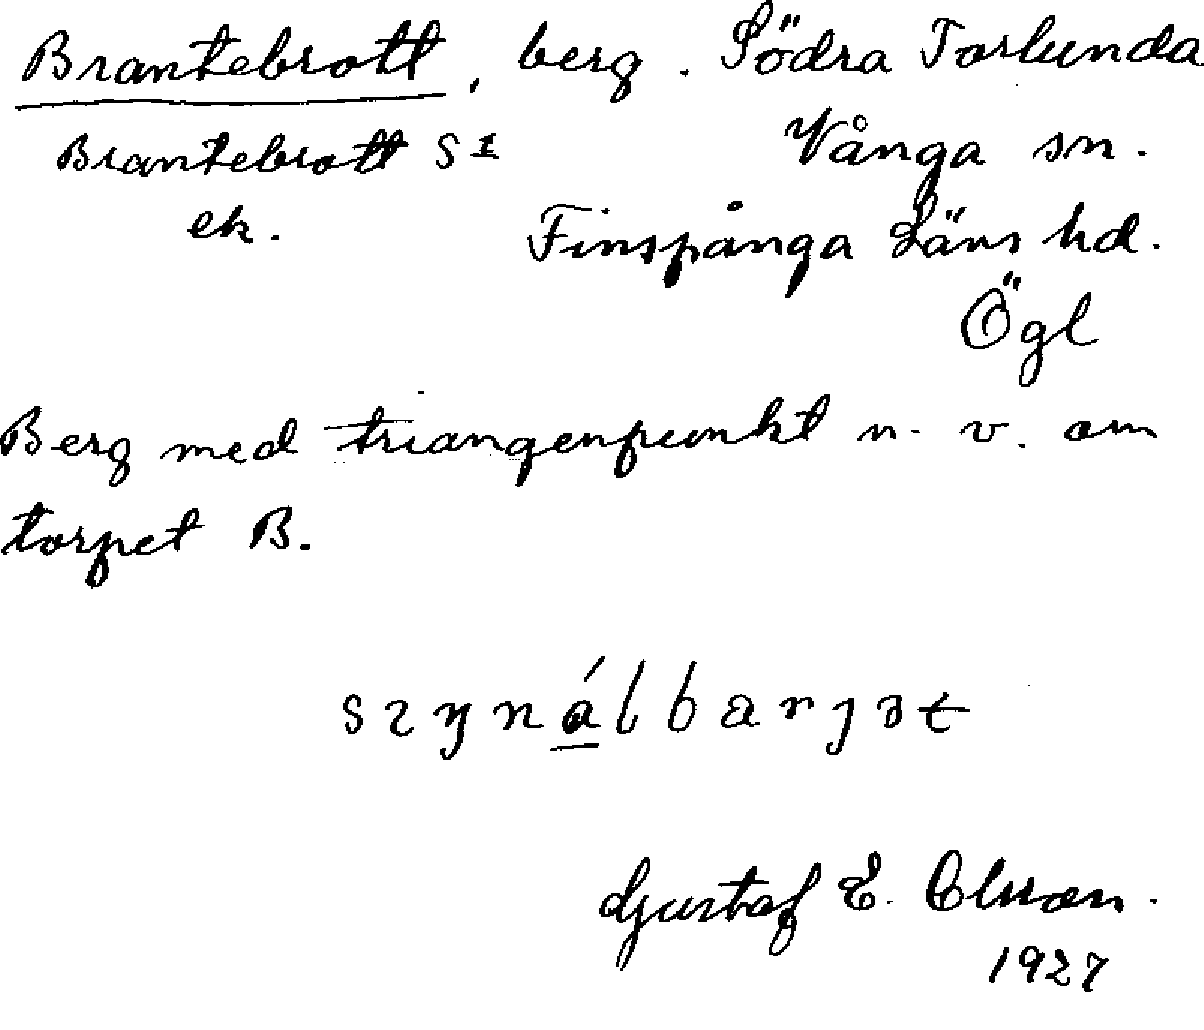 Brantebrott, berg. Södra Torlunda
Brantebrott S1 Vånga sn.
ek. Finspånga Läns hd.
Ögl
Berg med triangenpunkt n. v. om
torpet B.
Gustaf E. Olsson.
1927